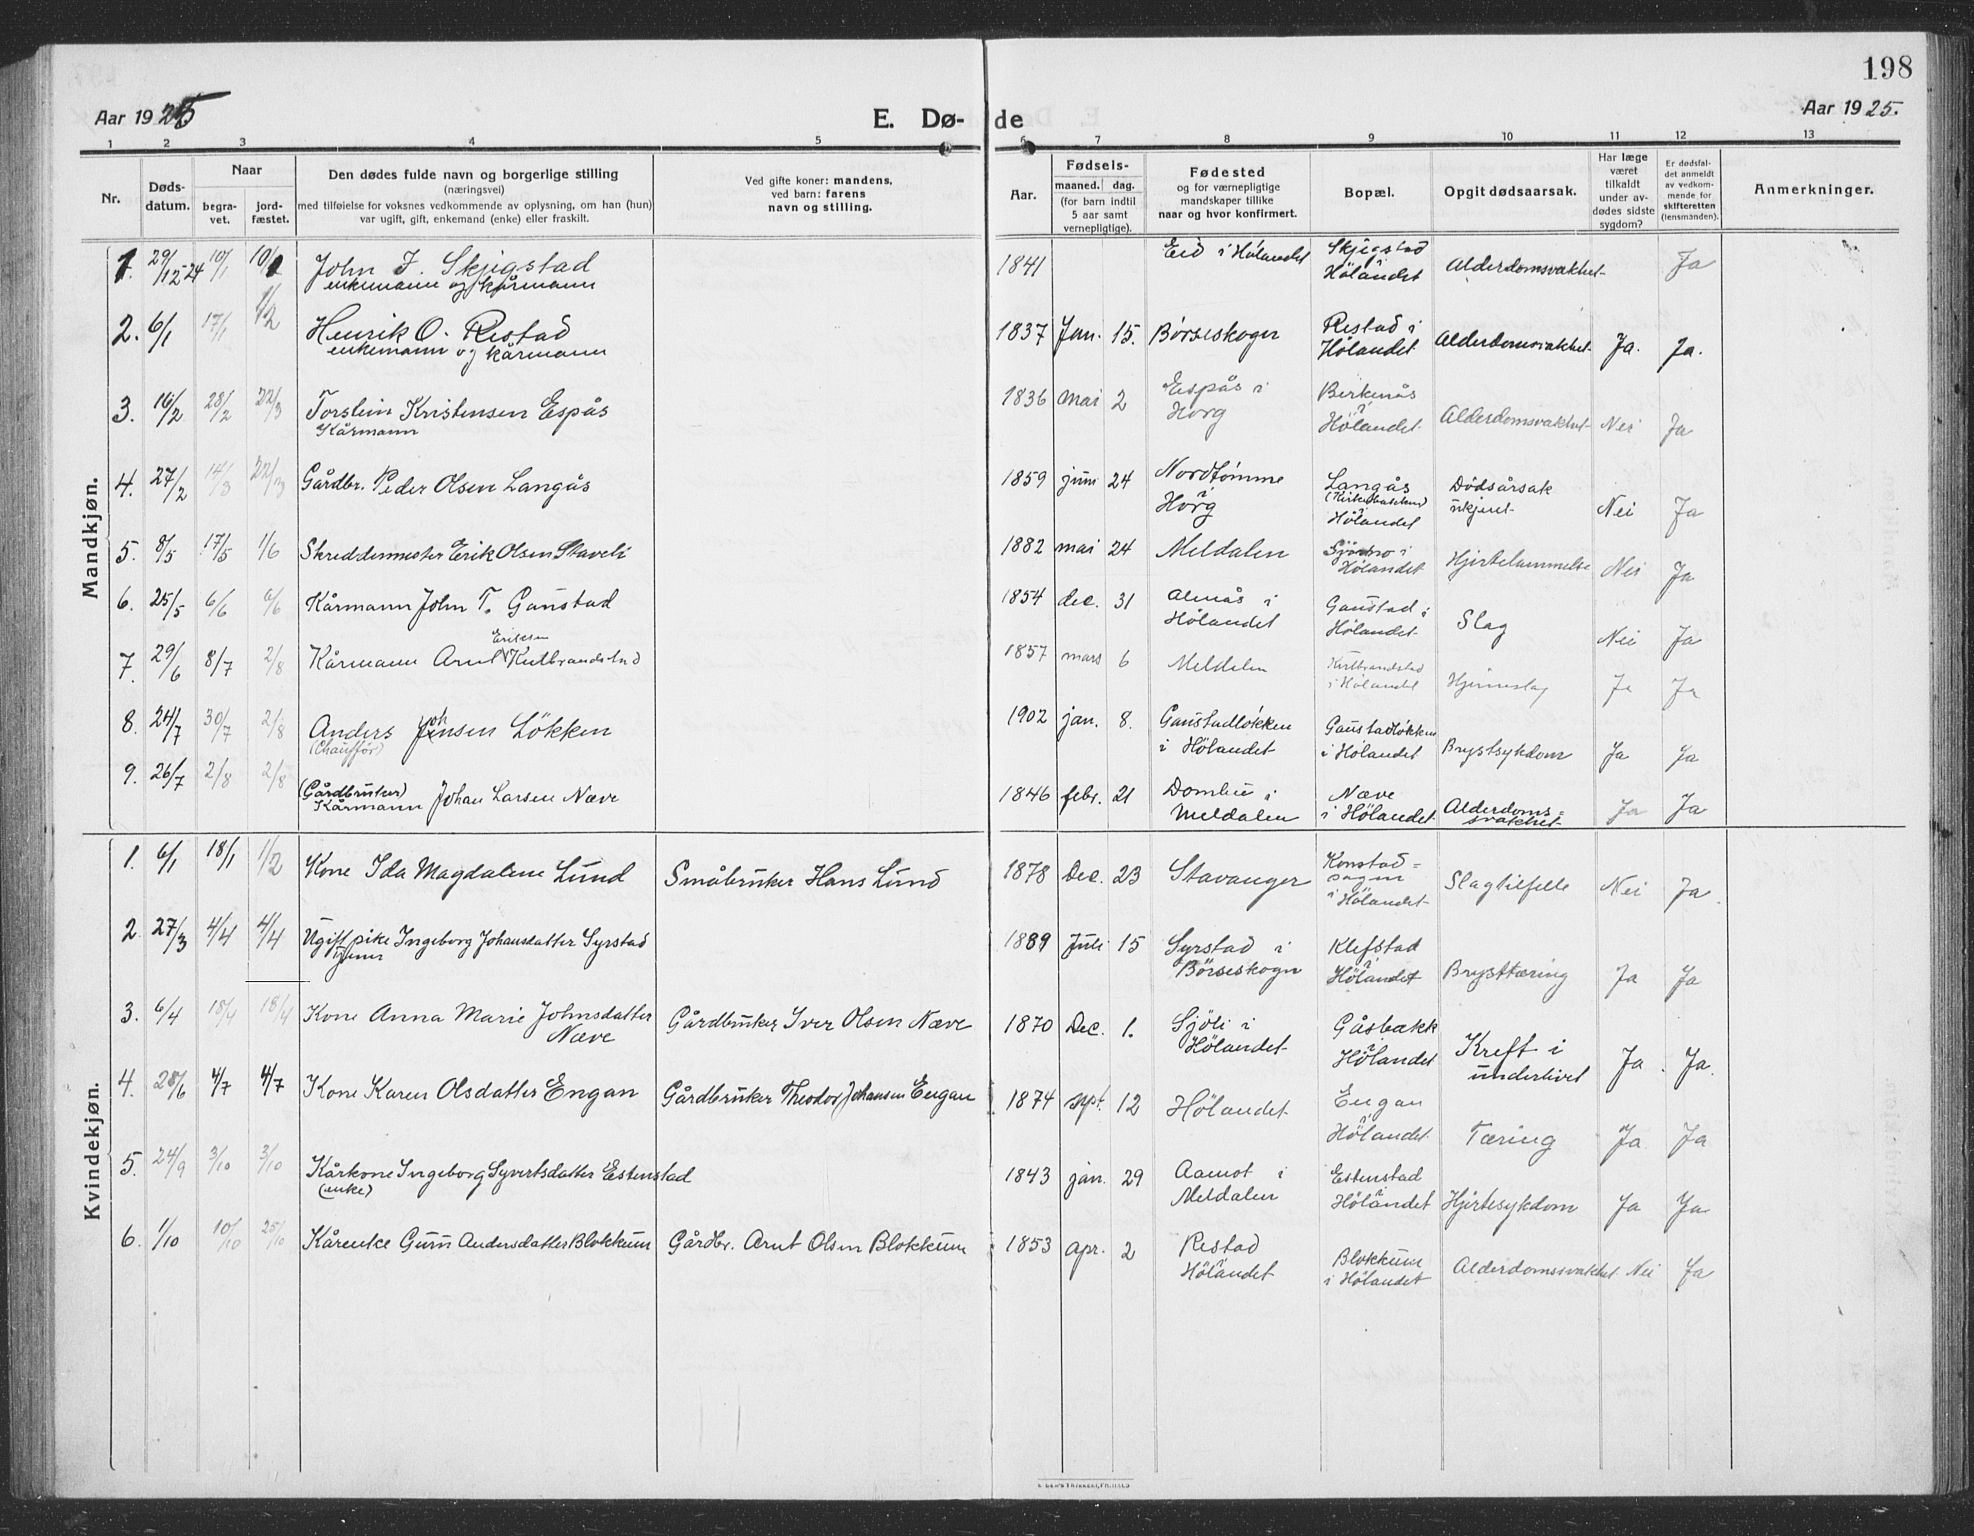 198
Aar 1925
E. Dø- de
Aar 1925.
1 2 3 4 5 6 7 8 9 10 11 12 13
Nr.
Døds-
datum.
Naar
begra-
vet.
jord-
fæstet.
Den dødes fulde navn og borgerlige stilling
(næringsvei)
med tilføielse for voksnes vedkommende av oplysning, om han (hun)
var ugift, gift, enkemand (enke) eller fraskilt.
Ved gifte koner: mandens,
ved barn: farens
navn og stilling.
Aar.
Fødsels-
maaned. dag.
(for barn indtil
5 aar samt
vernepligtige).
Fødested
og for værnepligtige
mandskaper tillike
naar og hvor konfirmert.
Bopæl.
Opgit dødsaarsak.
Har læge
været
tilkaldt
under av-
dødes sidste
sygdom?
Er dødsfal-
det anmeldt
av vedkom-
mende for
skifteretten
(lensmanden).
Anmerkninger.
Mandkjøn.
1. 29/12-24 10/1 10/1 John J. Skjegstad
enkemann og kårmann
1841 Eid i Hölandet Skjegstad
i
Hölandet Alderdomsvakhet Ja
2. 6/1 17/1 1/2 Henrik O. Restad
enkemann og kårmann
1837 Jan. 15. Börseskogn Restad i
Hölandet Alderdomsvakhet Ja. Ja.
3. 16/2 28/2 22/3 Torstein Kristensen Espås
Kårmann
1836 mai 2 Espås i
Horg Berkenås
i
Hölandet Alderdomsvakhet Nei Ja
4. 27/2 14/3 22/3 Gårdbr. Peder Olsen Langås
1859 juni 24 Nordtömme
i
Horg Langås
i
Hölandet Dödsårsak
ukjent Nei Ja
5. 8/5 17/5 1/6 Skreddermester Erik Olsen Staveli
1882 mai 24 Meldalen
Hölandet Hjertelammelse Nei Ja
6. 25/5 6/6 6/6 Kårmann John T. Gaustad
1854 dec. 31 Almås i
Hölandet Gaustad i
Hölandet Slag Nei Ja
7. 29/6 8/7 2/8 Kårmann Arnt Eriksen Kulbrandstad
1857 mars 6 Meldalen Kulbrandstad
i Hölandet Hjerneslag Ja Ja
8. 24/7 30/7 2/8 Anders Johnsen Lökken
(Chauffør)
1902 jan. 8. Gaustadlökken
i Hölandet Gaustadlökken
i Hölandet Brystsykdom Ja Ja
9. 26/7 2/8 2/8 (Gårdbruker)
Kårmann Johan Larsen Næve
1846 febr. 21 Dombu i
Meldalen Næve
i Hölandet Alderdoms-
svakhet Ja Ja
Kvindekjøn.
1. 6/1 18/1 1/2 Kone Ida Magdalene Lund Småbruker Hans Lund
1878 Dec. 23 Stavanger Konstad-
sagen
i Hölandet Slagtilfelle Nei Ja.
2. 27/3 4/4 4/4 Ugift pike Ingeborg Johansdatter Syrstad
1889 Juli 15 Syrstad i
Börseskogn Klefstad
i
Hölandet Brysttæring Ja Ja
3. 6/4 18/4 18/4 Kone Anna Marie Johnsdatter
Næve Gårdbruker Iver Olsen Næve
1870 Dec. 1. Sjöli i
Hölandet Gåsbakk
i
Hölandet Kreft i
underlivet Ja. Ja.
4. 28/6 4/7 4/7 Kone Karen Olsdatter Engan Gårdbruker Theodor Johansen Engan
1874 sept. 12 Hölandet Engan
i
Hölandet Tæring Ja. Ja
5. 24/9 3/10 3/10 Kårkone Ingeborg Syvertsdatter Estenstad
(enke)
1843 jan. 29 Aamot i
Meldalen Estenstad
i
Hölandet Hjertesykdom Ja Ja
6. 1/10 10/10 25/10 Kårenke Guru Andersdatter Blokkum Gårdbr. Arnt Olsen Blokkum
1853 apr. 2 Restad
i
Hölandet Blokkum
i Hölandet Alderdomssvakhet Nei Ja